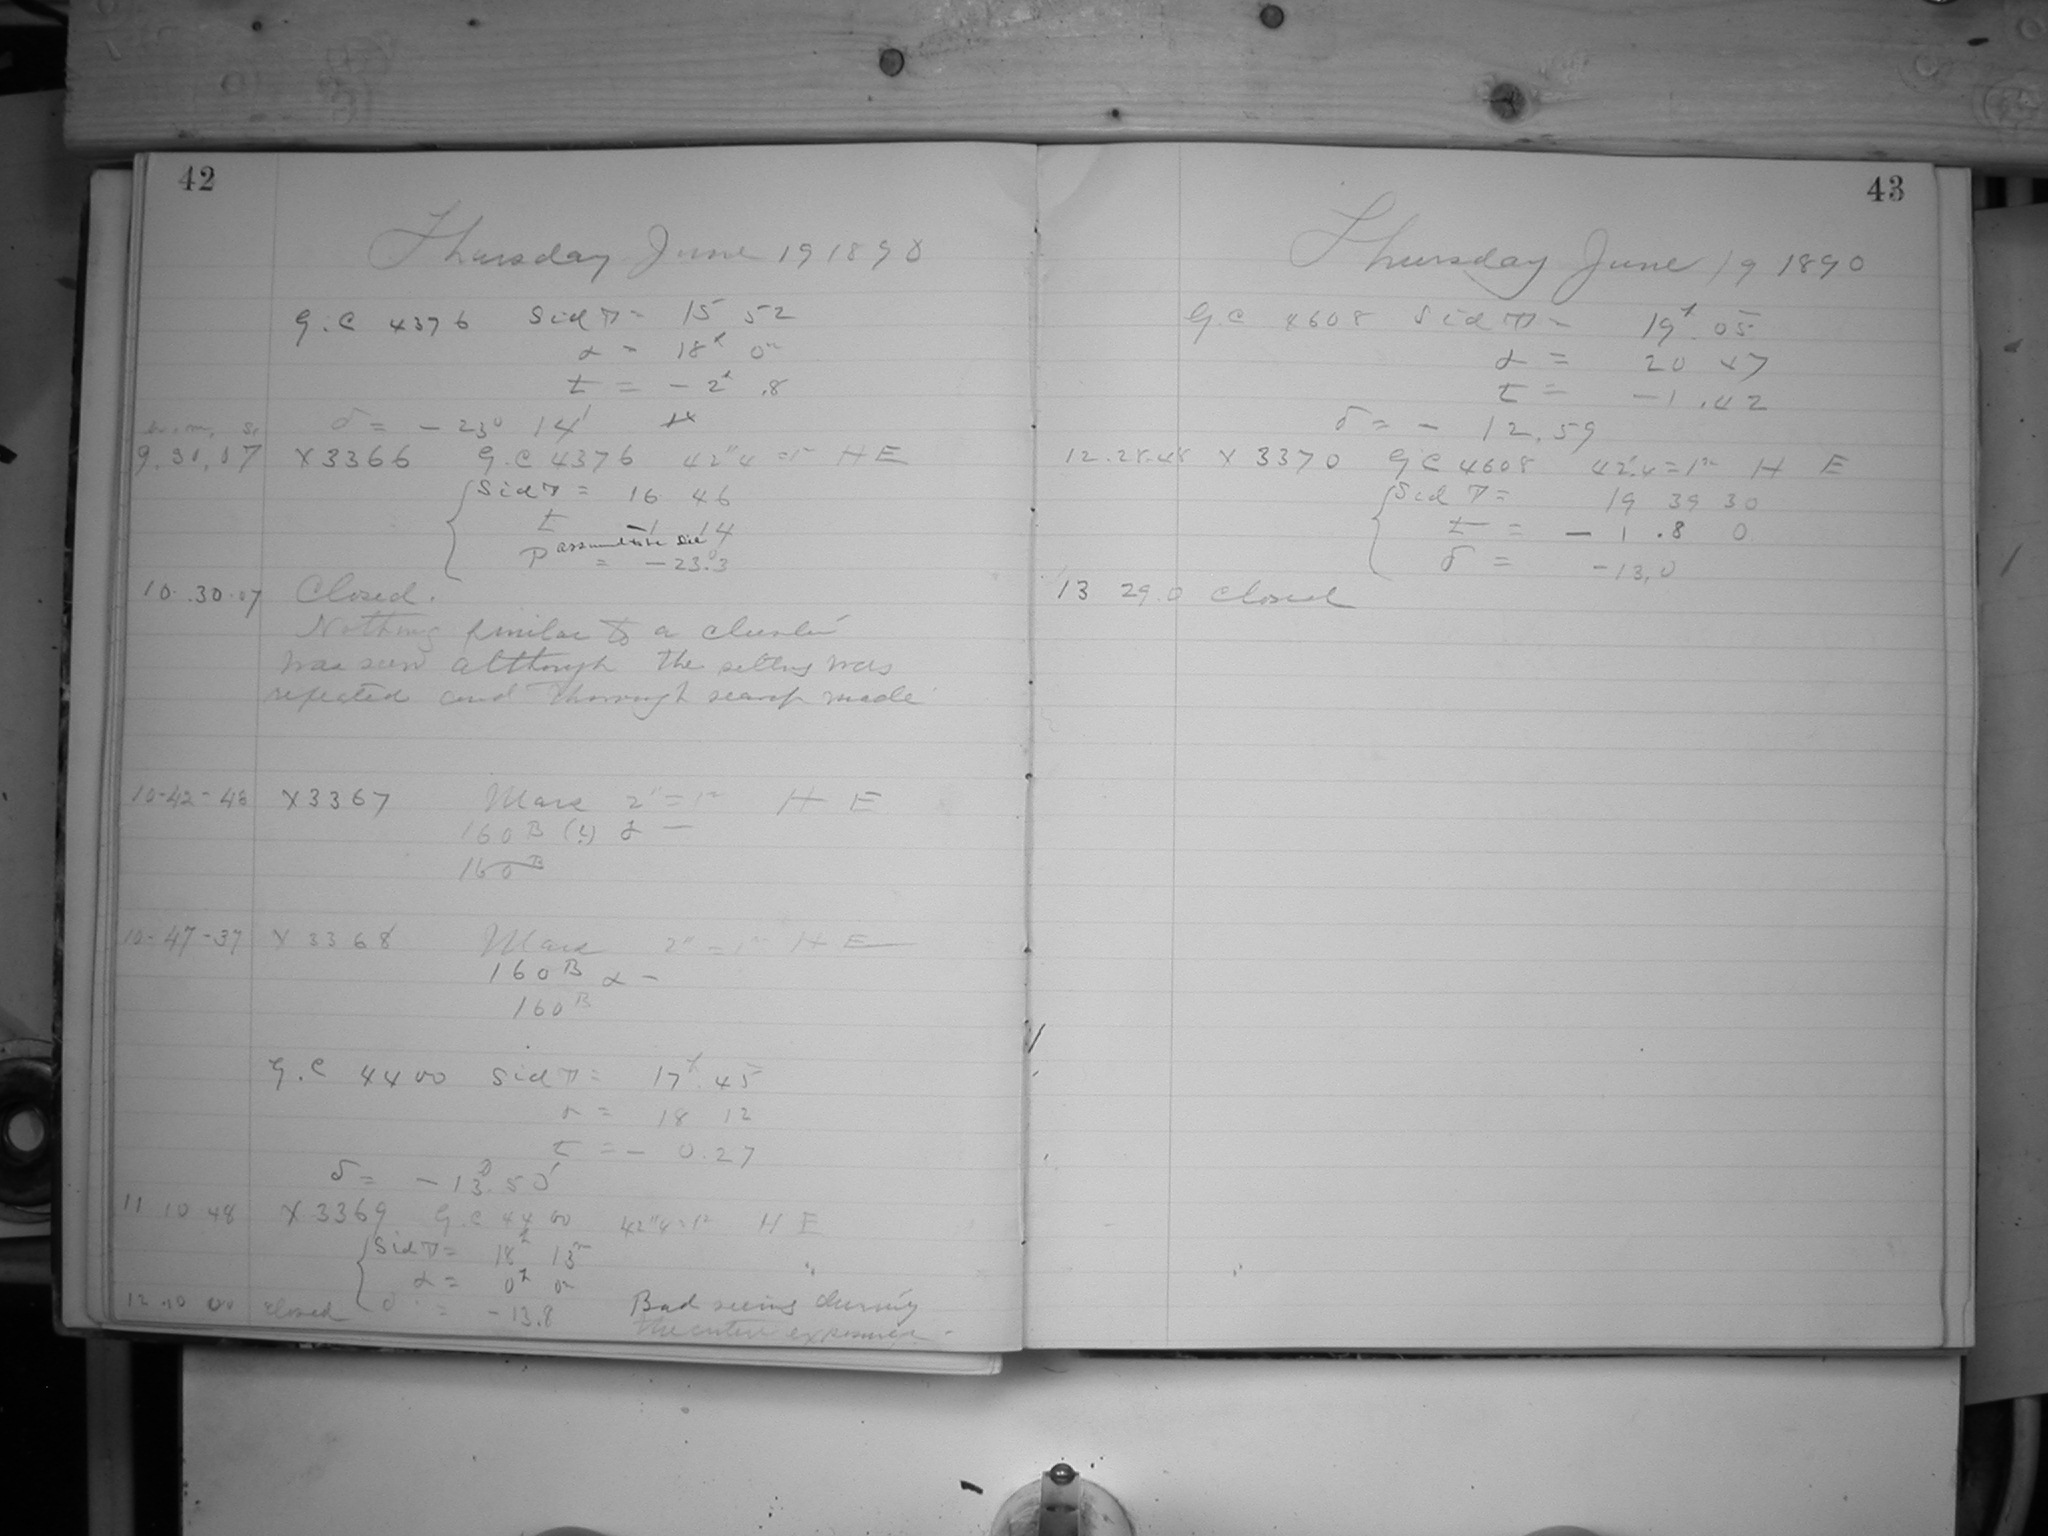 42
Thursday June 19 1890
G.C 4376 Sid T = 15 52
α = 18h 0m
t = - 2h .8
δ = - 23° 14'
h. m. s.
9.30.07 X3366 G.C 4376 42".4 = 1m H E
Sid T = 16 46
t -1 14
assumed to be
D = -23.°3
10.30.07 Closed.
Nothing similar to a cluster
was seen although the setting was
repeated and thorough search made
10-42-48 X3367 Mars 2" = 1m H E
160 B (?) α -
160 B
10-47-37 X3368 Mars 2" = 1m H E
160 B α -
160 B
G.C 4400 Sid T = 17h 45
α = 18 12
t = - 0.27
δ = - 13° 50'
11 10 48 X3369 G.C 4400 42".4 = 1m H E
Sid T = 18h 13m
α = 0h 0m
12 10 00 closed δ = - 13.8 Bad seeing during
the entire exposure.
43
Thursday June 19 1890
G.C 4608 Sid T = 19h. 05
α = 20 47
t = -1.42
δ = - 12.59
12.28.48 X 3370 G.C 4608 42".4 = 1m H E
Sid T = 19 39 30
t = - 1.8 0
δ = -13.0
13 29.0 Closed